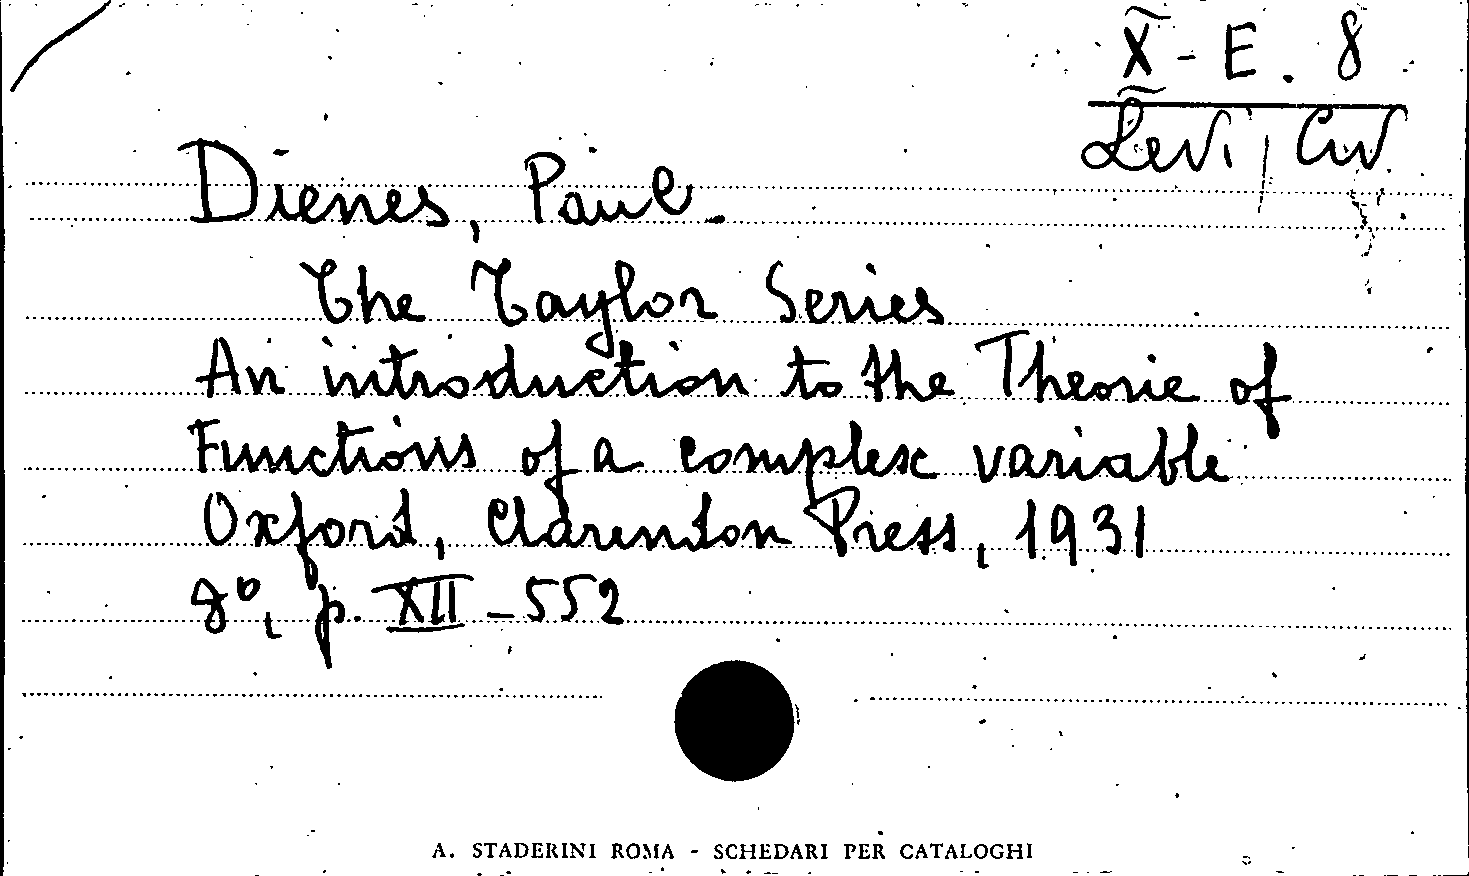 X - E. 8
Levi, Civ
Dienes, Paul.
The Taylor Series
An introduction to the Theorie of
Functions of a complex variable
Oxford, Clarendon Press, 1931
8°, p. XII - 552
A. STADERINI ROMA - SCHEDARI PER CATALOGHI